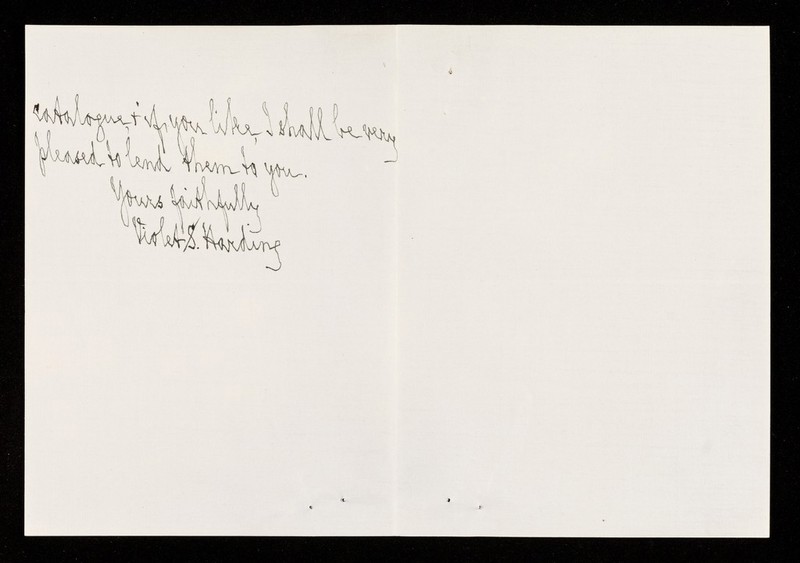 catalogue, & if, you like, I shall be very
pleased to lend them to you.
Yours faithfully
Violet S. Harding